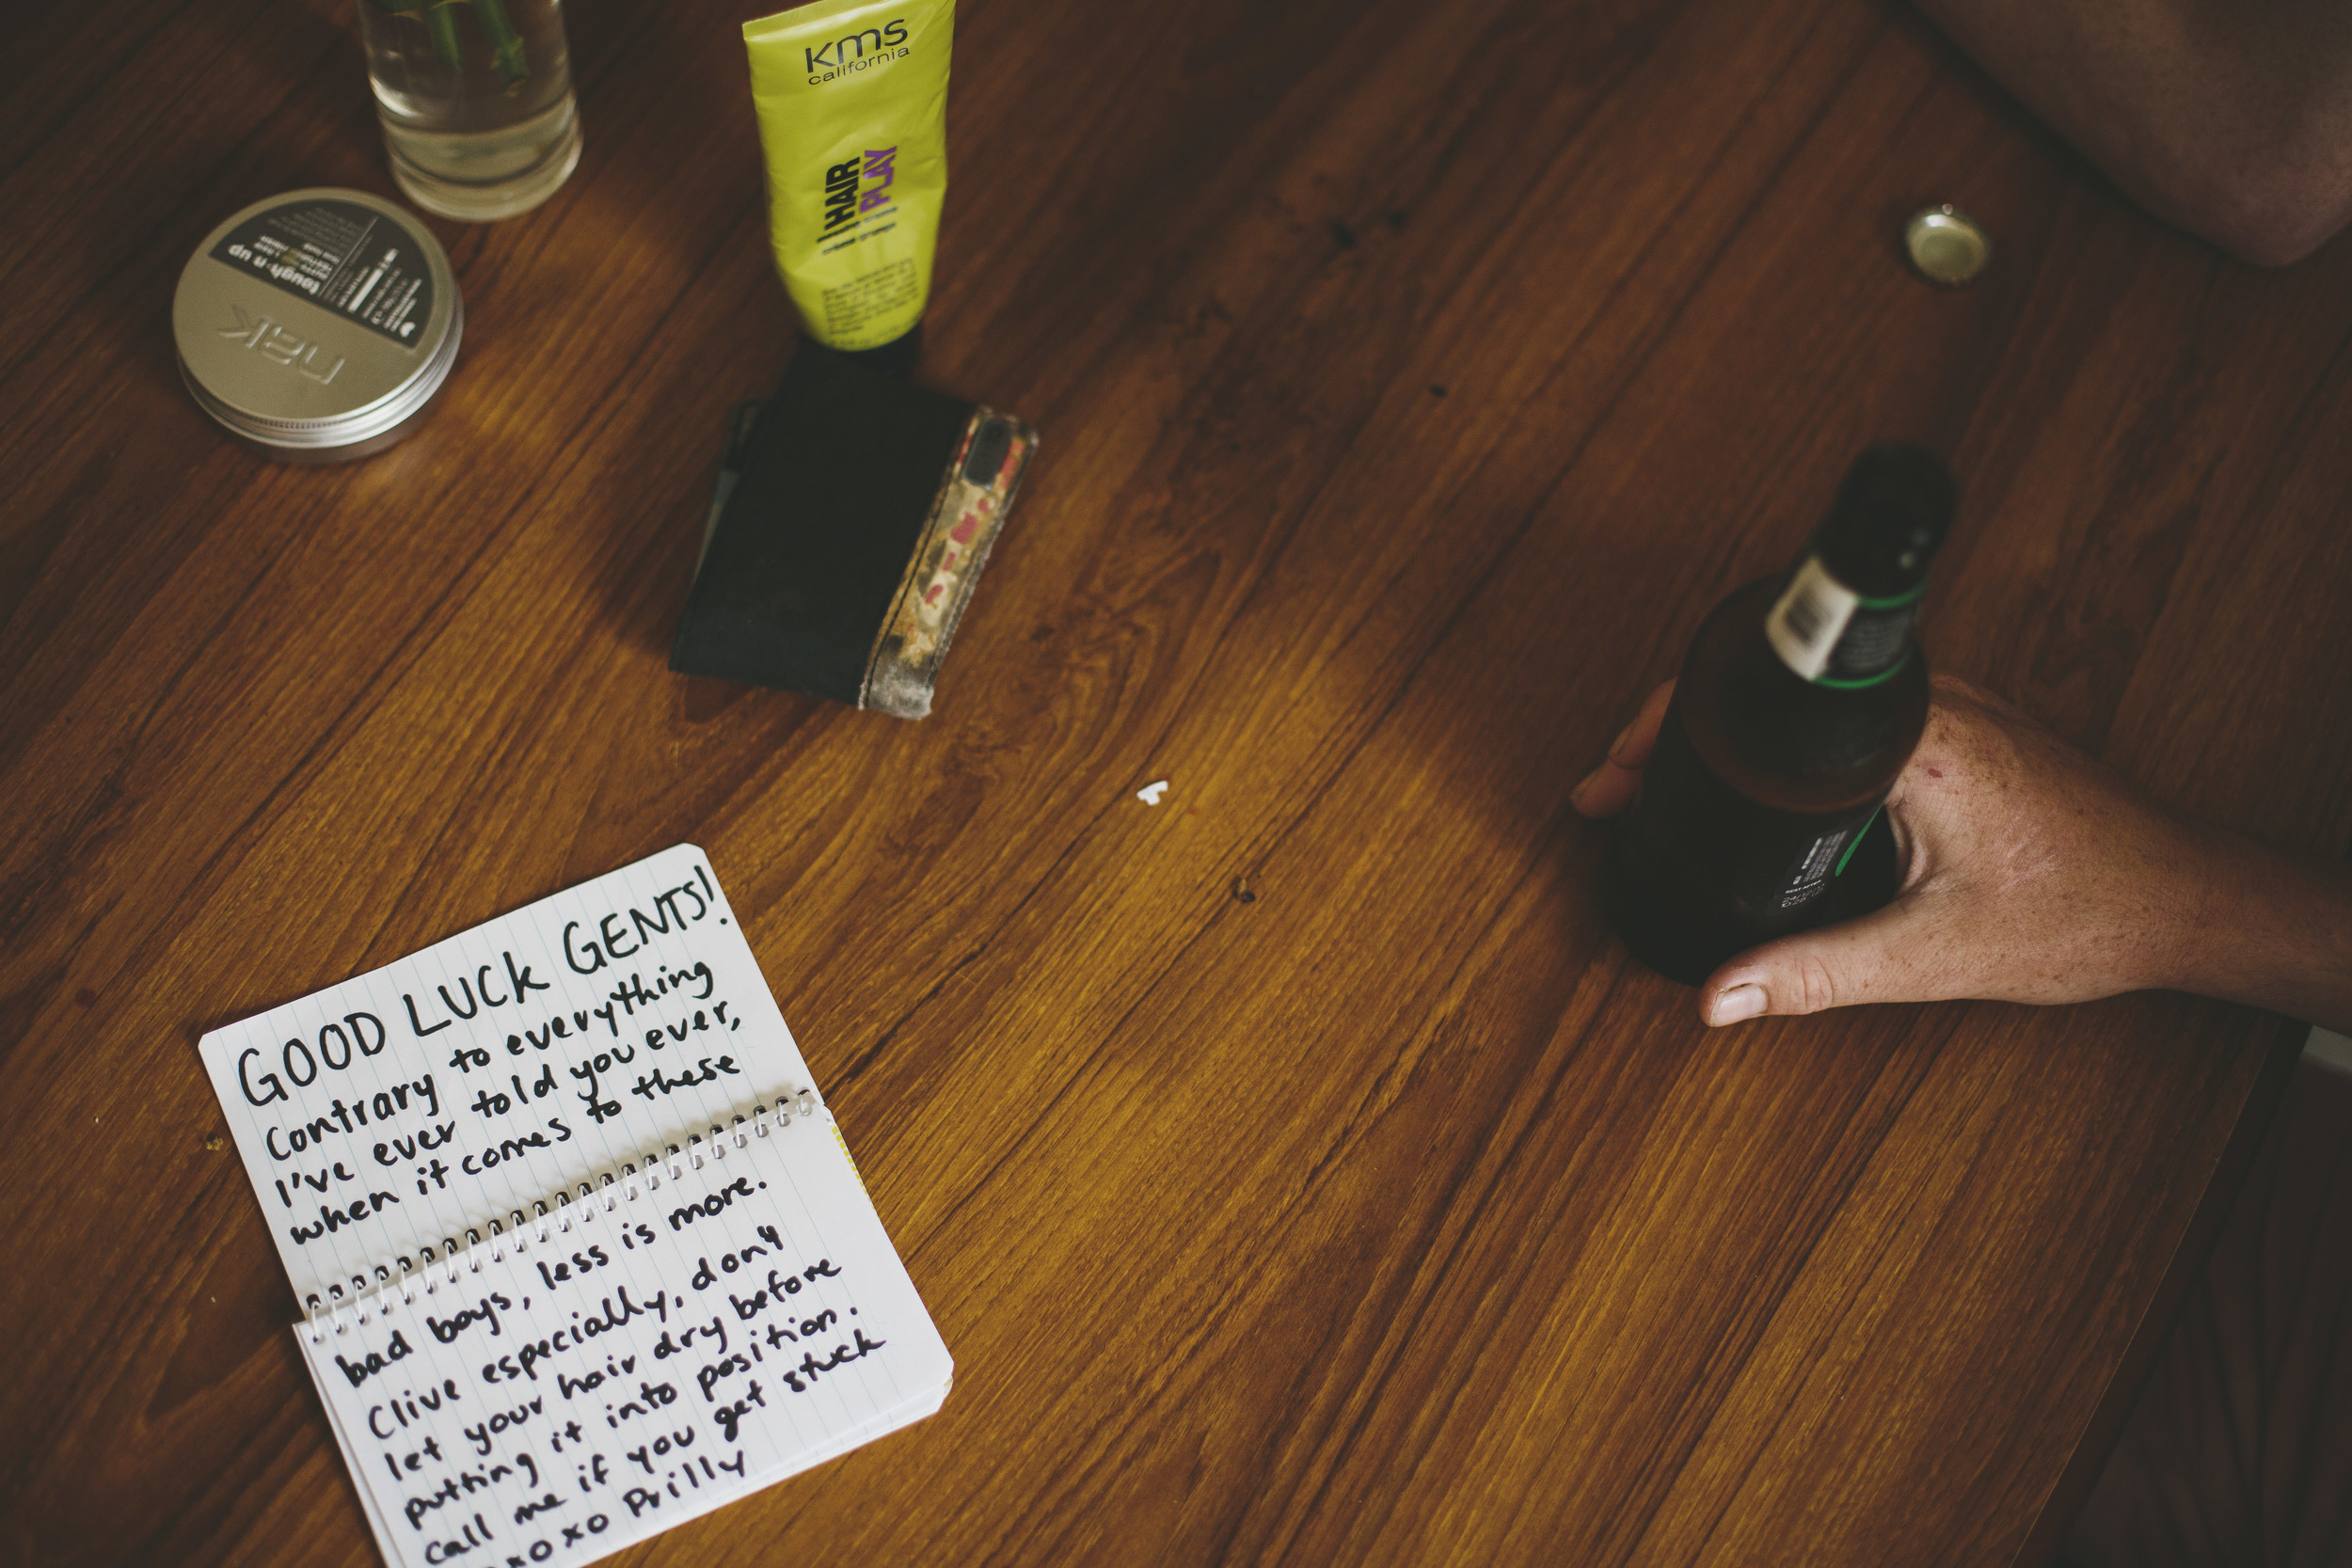 kms
california
HAIR
PLAY
tough·n up
nak
GOOD LUCK GENTS!
Contrary to everything
I've ever told you ever,
when it comes to these
bad boys, less is more.
Clive especially, don't
let your hair dry before
putting it into position.
call me if you get stuck
xoxo Prilly